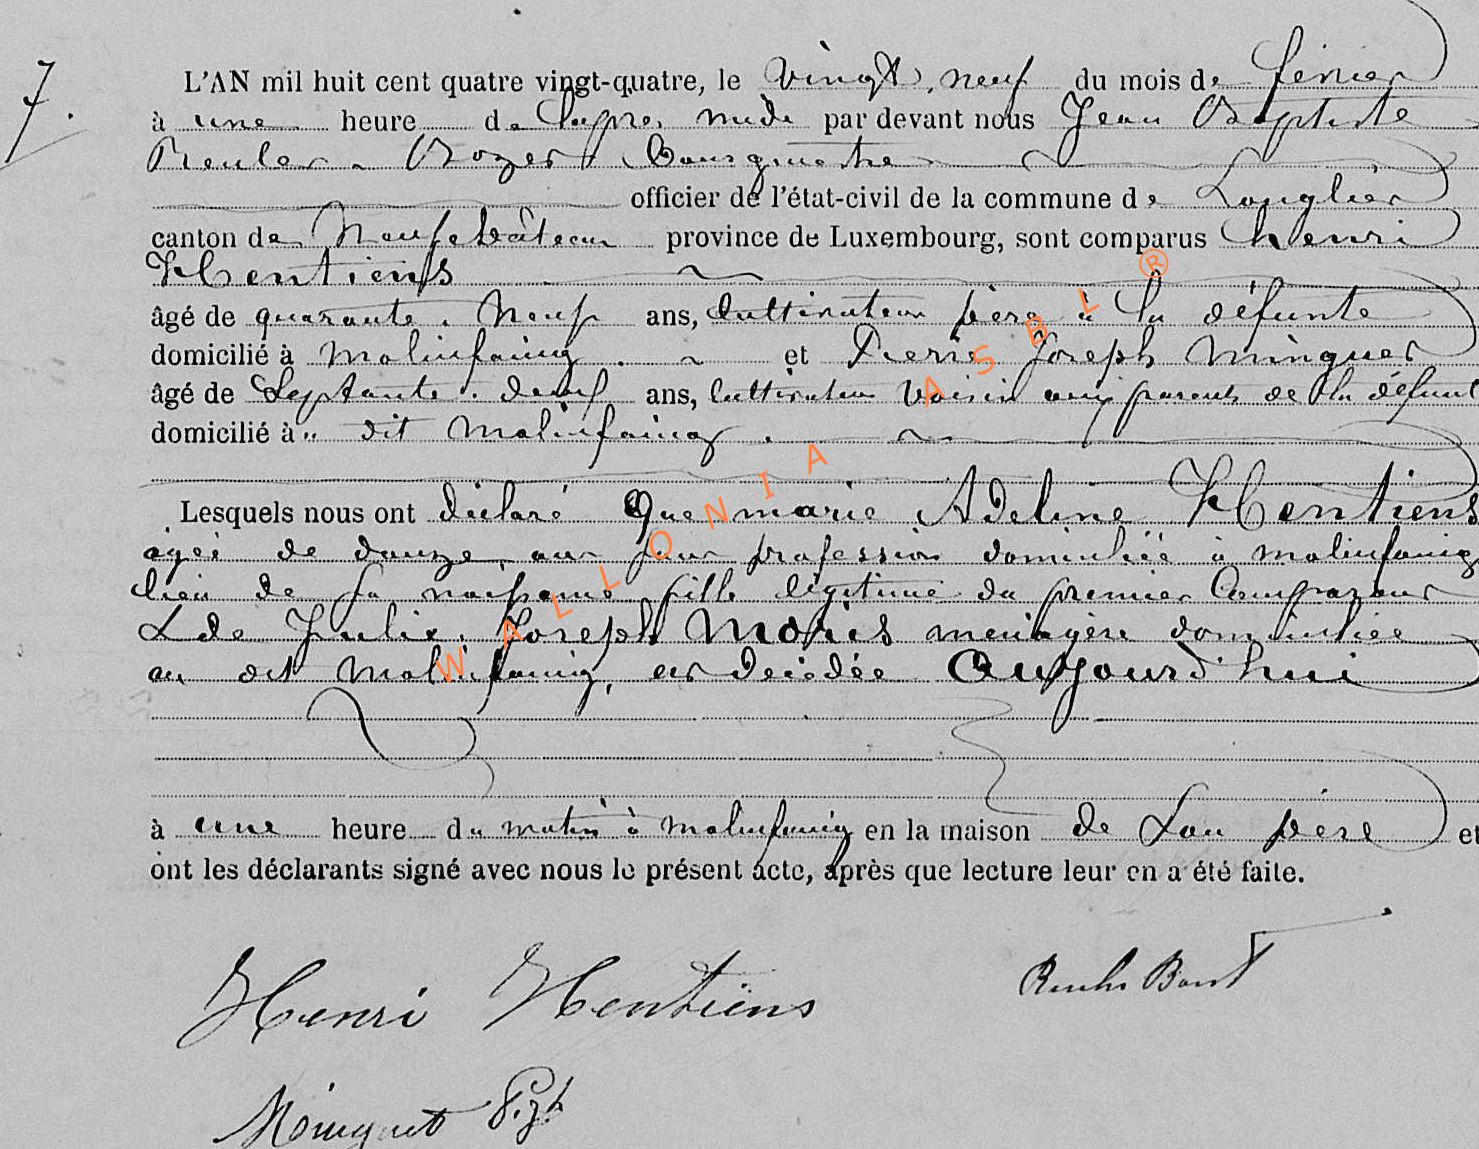 7.
L'AN mil huit cent quatre vingt-quatre, le vingt, neuf du mois de fevrier
à une heure de l'apres midi par devant nous Jean Baptiste
Reuler Rozer Bourgmestre
officier de l'état-civil de la commune de Longlier
canton de Neufchâteau province de Luxembourg, sont comparus henri
Hentiens
âgé de quarante. Neuf ans, Cultivateur père à la défunte
domicilié à Molinfaing. et Pierre Joseph Minguet
âgé de Septante. deux ans, Cultivateur Voisin aux parents de la défunte
domicilié à" dit Molinfaing.
Lesquels nous ont déclaré Que marie Adeline Hentiens
agée de douze ans sans profession domiciliée à molinfaing
lieu de sa naissance fille légitime du premier Comparant
& de Julie. Joseph Moris menagère domiciliée
au dit Molinfaing, est Decédée Aujourd'hui
à une heure du matin à Molinfaing en la maison de Son père et
ont les déclarants signé avec nous le présent acte, après que lecture leur en a été faite.
Henri Hentiens
Minguet
WALLONIA ASBL ®